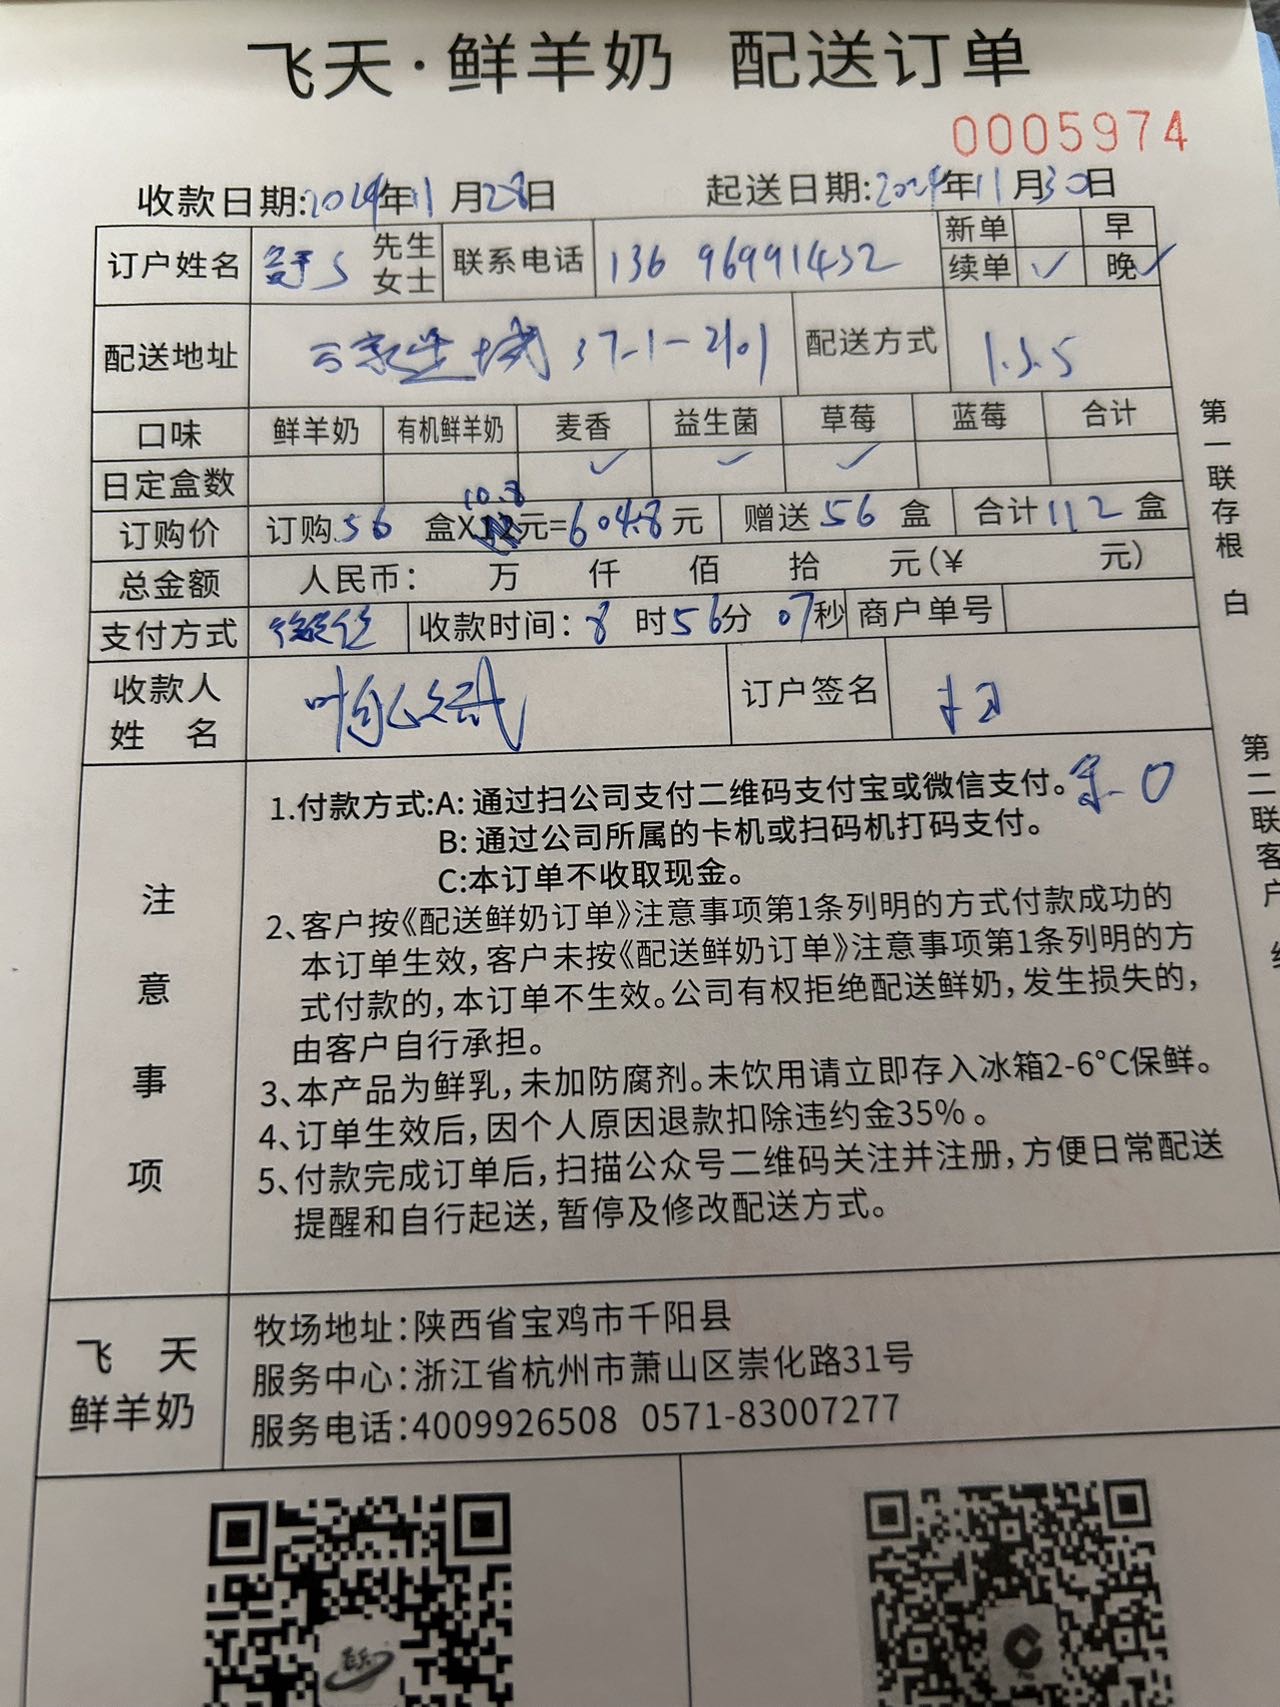 飞天·鲜羊奶 配送订单
0005974
收款日期:2024年11月28日 起送日期:2024年11月30日
订户姓名 舒 先生 女士 联系电话 136 96991432 新单 早
续单 ✓ 晚 ✓
配送地址 城 37-1-2101 配送方式 1.3.5
口味 鲜羊奶 有机鲜羊奶 麦香 益生菌 草莓 蓝莓 合计
日定盒数 ✓ ✓ ✓
10.8
订购价 订购 56 盒X12元=604.8元 赠送 56 盒 合计 112 盒
总金额 人民币: 万 仟 佰 拾 元(¥ 元)
支付方式 微信 收款时间: 8 时 56分 07秒 商户单号
收款人
姓 名 订户签名
注意事项
1.付款方式:A: 通过扫公司支付二维码支付宝或微信支付。余0
B: 通过公司所属的卡机或扫码机打码支付。
C:本订单不收取现金。
2、客户按《配送鲜奶订单》注意事项第1条列明的方式付款成功的
本订单生效,客户未按《配送鲜奶订单》注意事项第1条列明的方
式付款的,本订单不生效。公司有权拒绝配送鲜奶,发生损失的,
由客户自行承担。
3、本产品为鲜乳,未加防腐剂。未饮用请立即存入冰箱2-6°C保鲜。
4、订单生效后,因个人原因退款扣除违约金35%。
5、付款完成订单后,扫描公众号二维码关注并注册,方便日常配送
提醒和自行起送,暂停及修改配送方式。
飞 天
鲜羊奶
牧场地址:陕西省宝鸡市千阳县
服务中心:浙江省杭州市萧山区崇化路31号
服务电话:4009926508 0571-83007277
第一联存根 白
第二联客户